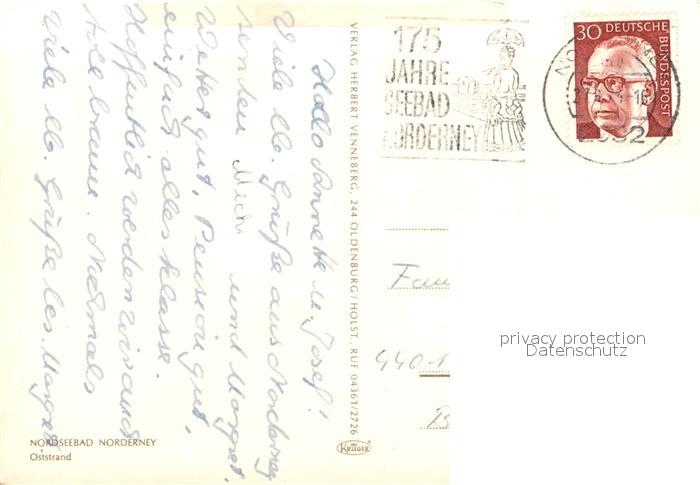 Hallo Annette u. Josef!
Viele lb. Grüße aus Norderney
senden Michi und Margret.
Wetter gut, Pension gut,
einfach alles klasse.
Hoffentlich werden wir auch
toll braun. Nochmals
Viele lb. Grüße
VERLAG HERBERT VENNEBERG, 244 OLDENBURG/HOLST., RUF 04361/2726
NORDSEEBAD NORDERNEY
Oststrand
KRÜGER
175
JAHRE
SEEBAD
NORDERNEY
30 DEUTSCHE
BUNDESPOST
Fam
440
privacy protection
Datenschutz